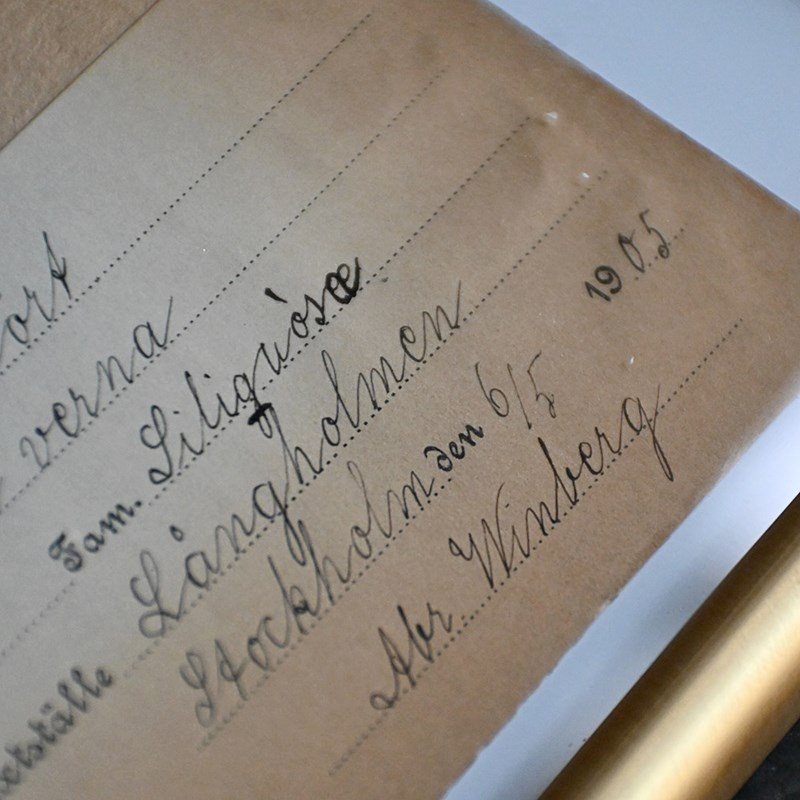 verna
Fam. Siliquosæ
Långholmen
Stockholm den 6/5 1905
Abr. Winberg